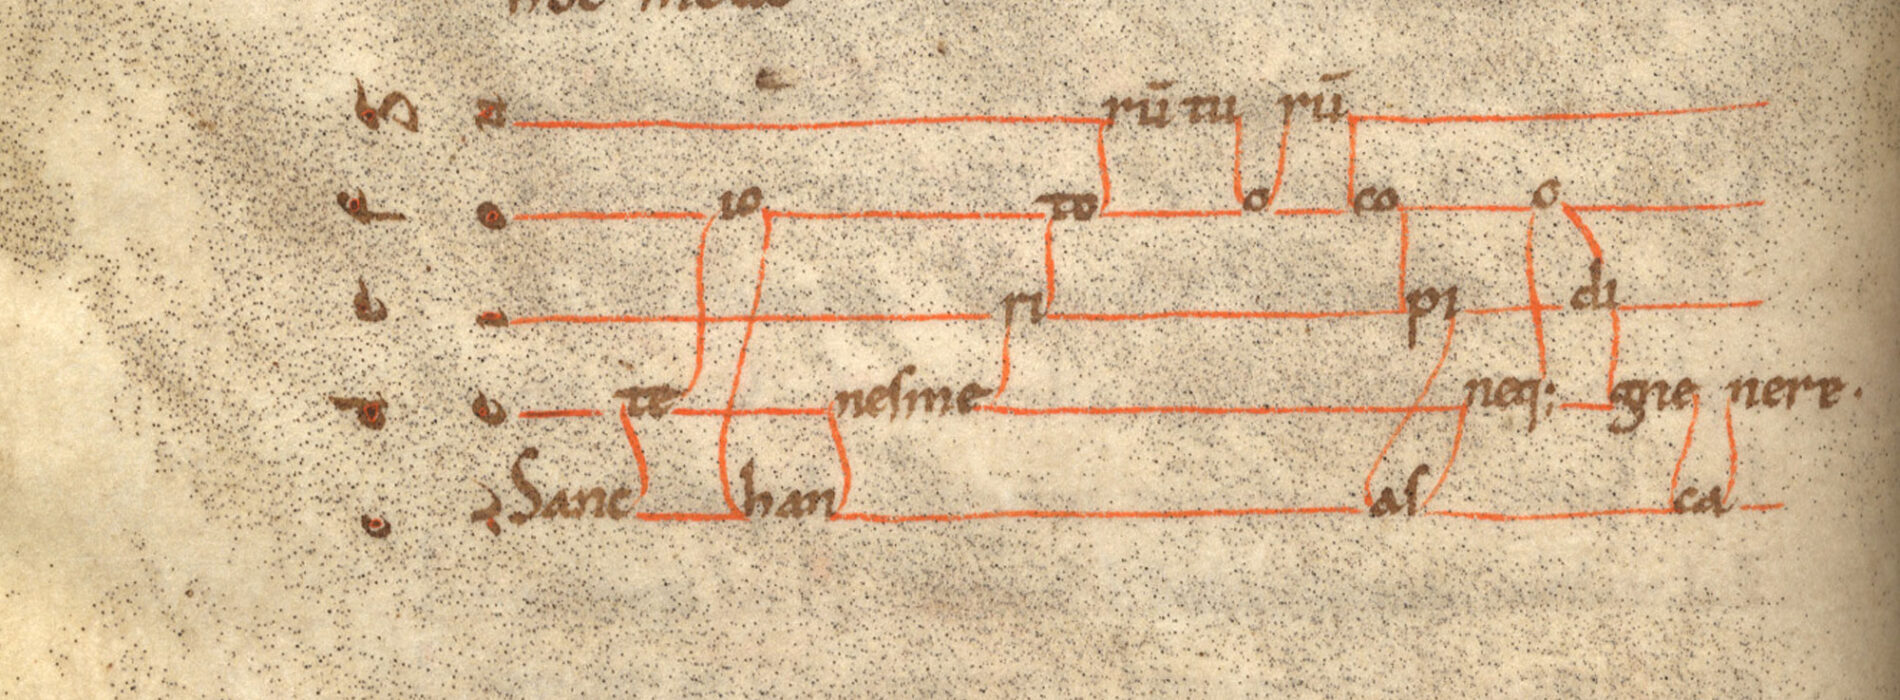 hoc modo
a rũ tu rũ
e io to o co o
i ri pi di
o te nesme neq; gne nere.
Sanc han as ca